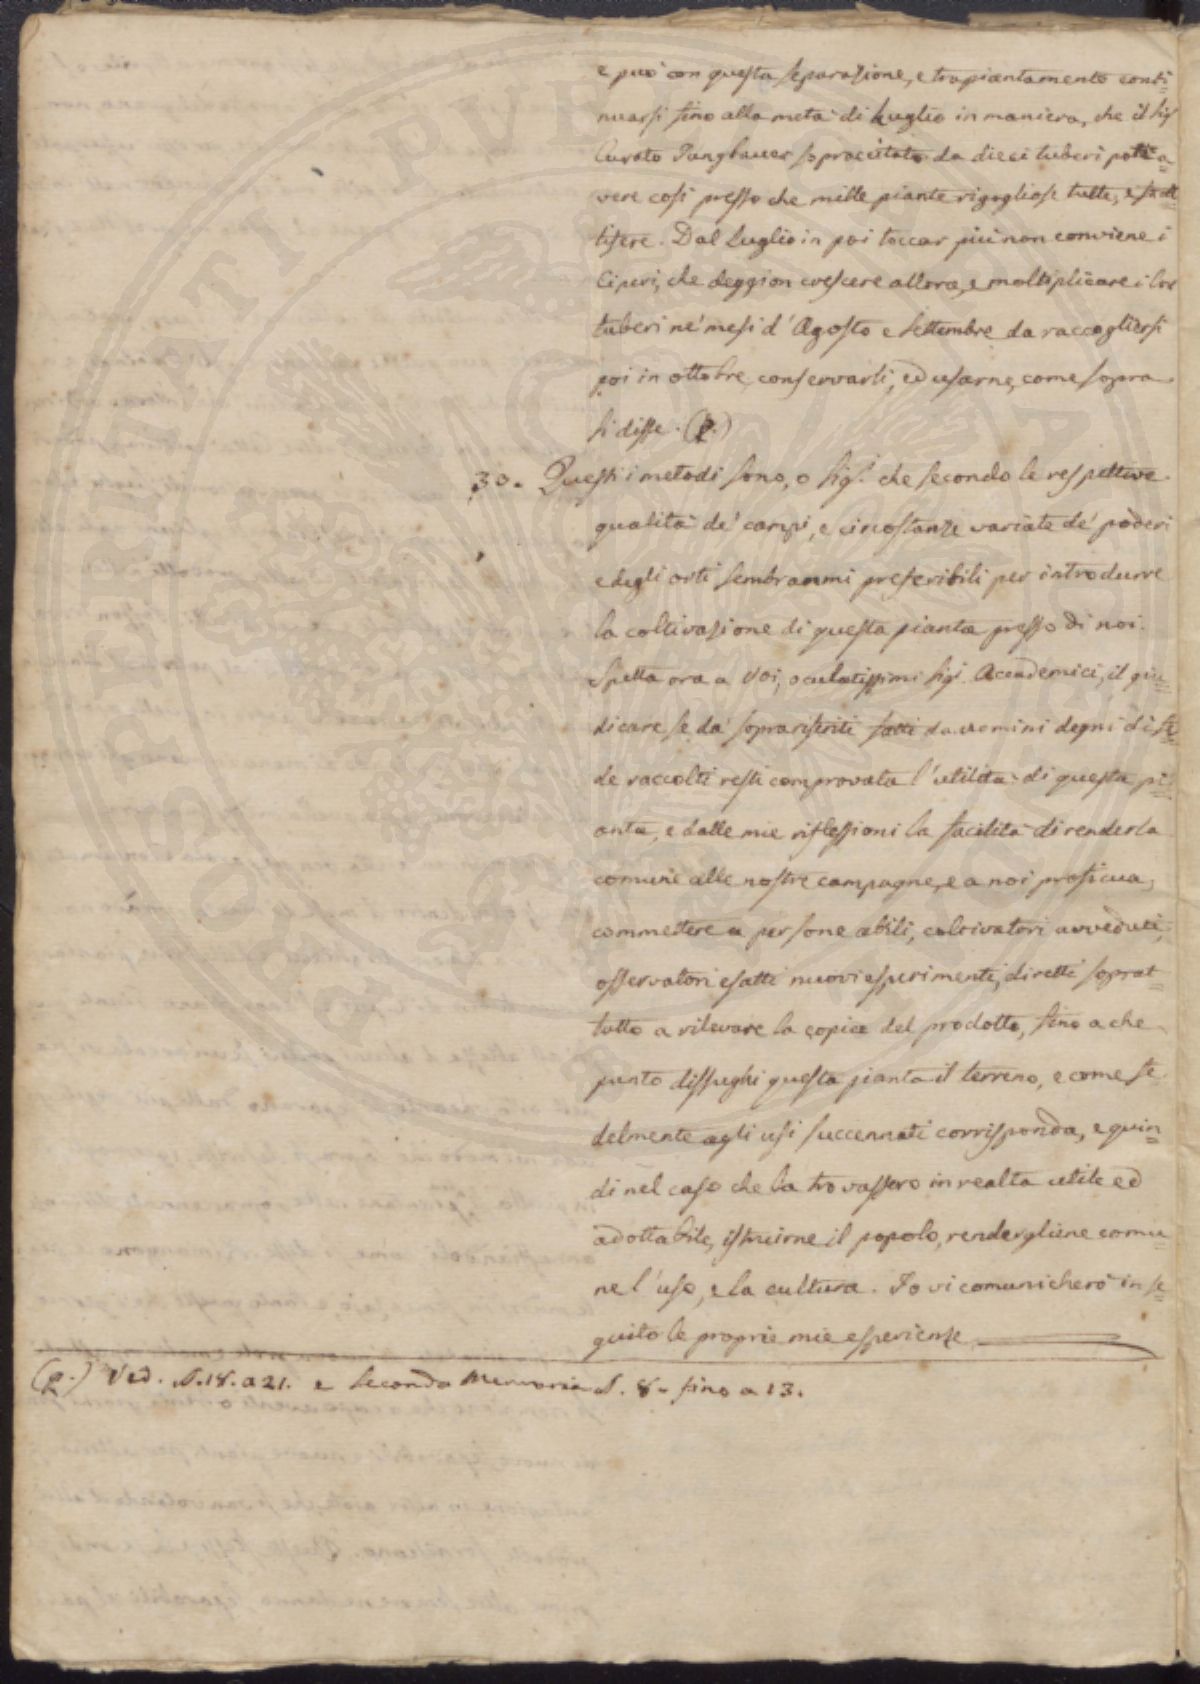 e può con questa separazione, e trapiantamento conti=
nuarsi sino alla metà di Luglio in maniera, che il Sig
Curato Jungbauer sopracitato da dieci tuberi potè a=
vere così presso che mille piante rigogliose tutte, e frut
tifere. Dal Luglio in poi toccar più non conviene i
Ciperi, che deggion crescere allora, e moltiplicare i lor
tuberi ne' mesi d' Agosto e Settembre da raccogliersi
poi in ottobre, conservarli, ed usarne, come sopra
si disse. (p.)
30. Questi i metodi sono, o Sigi. che secondo le respettive
qualità de' campi, e circostanze variate de' poderi
e degli orti sembranmi preferibili per introdurre
la coltivazione di questa pianta presso di noi.
Spetta ora a Voi, oculatissimi Sigi. Accademici, il giu=
dicare se da' soprariferiti fatti da uomini degni di fe=
de raccolti resti comprovata l' utilità di questa pi=
anta, e dalle mie riflessioni la facilità di renderla
comune alle nostre campagne, e a noi proficua,
commettere a persone abili, coltivatori avveduti,
osservatori esatti nuovi esperimenti, diretti soprat=
tutto a rilevare la copia del prodotto, sino a che
punto dissughi questa pianta il terreno, e come fe
delmente agli usi succennati corrisponda, e quin=
di nel caso che la trovassero in realtà utile ed
adottabile, istruirne il popolo, rendergliene comu=
ne l' uso, e la cultura. Io vi comunicherò in se=
guito le proprie mie esperienze.
(p.) Ved. §.18. a 21. e seconda Memoria §. 8- fino a 13.